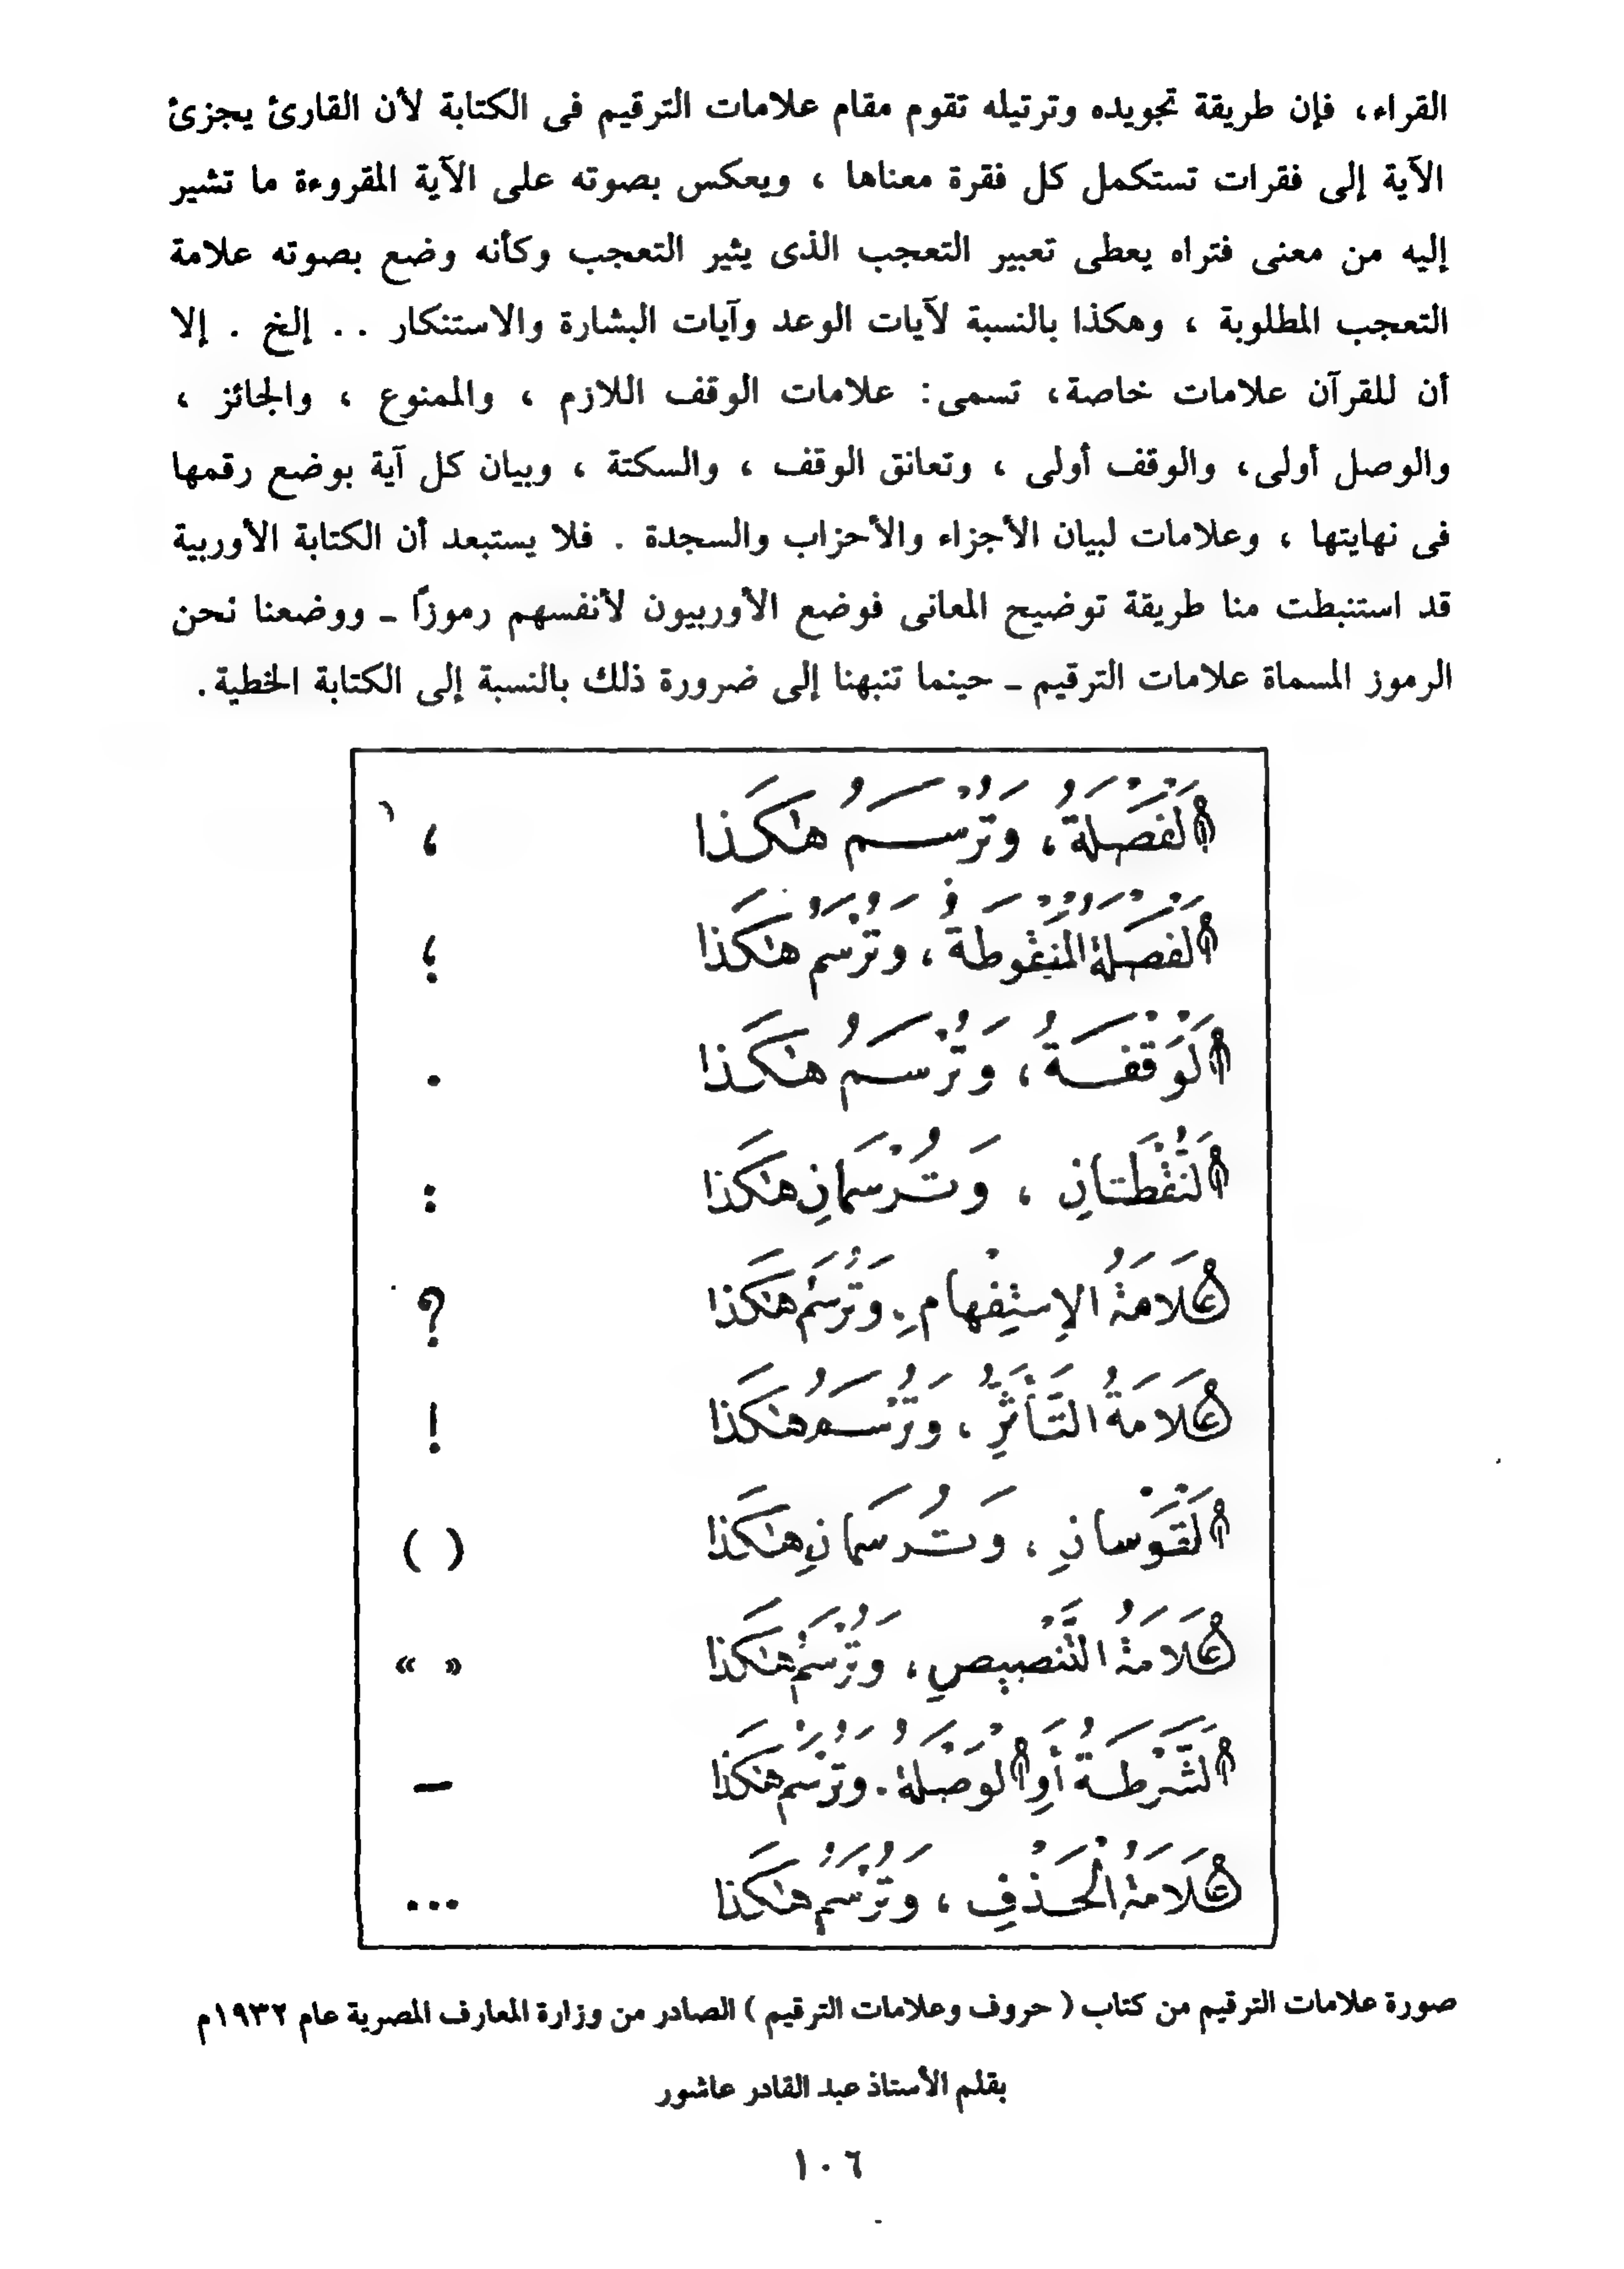 القراء، فإن طريقة تجويده وترتيله تقوم مقام علامات الترقيم فى الكتابة لأن القارئ يجزئ
الآية إلى فقرات تستكمل كل فقرة معناها ، ويعكس بصوته على الآية المقروءة ما تشير
إليه من معنى فتراه يعطى تعبير التعجب الذى يثير التعجب وكأنه وضع بصوته علامة
التعجب المطلوبة ، وهكذا بالنسبة لآيات الوعد وآيات البشارة والاستنكار . . إلخ . إلا
أن للقرآن علامات خاصة، تسمى: علامات الوقف اللازم ، والممنوع ، والجائز ،
والوصل أولى، والوقف أولى ، وتعانق الوقف ، والسكتة ، وبيان كل آية بوضع رقمها
فى نهايتها ، وعلامات لبيان الأجزاء والأحزاب والسجدة . فلا يستبعد أن الكتابة الأوربية
قد استنبطت منا طريقة توضيح المعانى فوضع الأوربيون لأنفسهم رموزاً ـ ووضعنا نحن
الرموز المسماة علامات الترقيم ـ حينما تنبهنا إلى ضرورة ذلك بالنسبة إلى الكتابة الخطية.
اَلْفَصْلَةُ ، وَتُرْسَمُ هٰكَذا ،
اَلْفَصْلَةُ الْمَنْقُوطَةُ ، وَتُرْسَمُ هٰكَذا ؛
اَلْوَقْفَةُ ، وَتُرْسَمُ هٰكَذا .
اَلنُّقْطَتانِ ، وَتُرْسَمانِ هٰكَذا :
عَلامَةُ الاِسْتِفْهامِ. وَتُرْسَمُ هٰكَذا ؟
عَلامَةُ التَّأَثُّرِ ، وَتُرْسَمُ هٰكَذا !
اَلْقَوْسانِ ، وَتُرسَمانِ هٰكَذا ( )
عَلامَةُ التَّنْصيصِ ، وَتُرْسَمُ هٰكَذا « »
اَلشَّرْطَةُ أَوِ الْوَصْلَةُ . وَتُرْسَمُ هٰكَذا —
عَلامَةُ الْحَذْفِ ، وَتُرْسَمُ هٰكَذا ...
صورة علامات الترقيم من كتاب ( حروف وعلامات الترقيم ) الصادر من وزارة المعارف المصرية عام ١٩٣٢م
بقلم الأستاذ عبد القادر عاشور
١٠٦